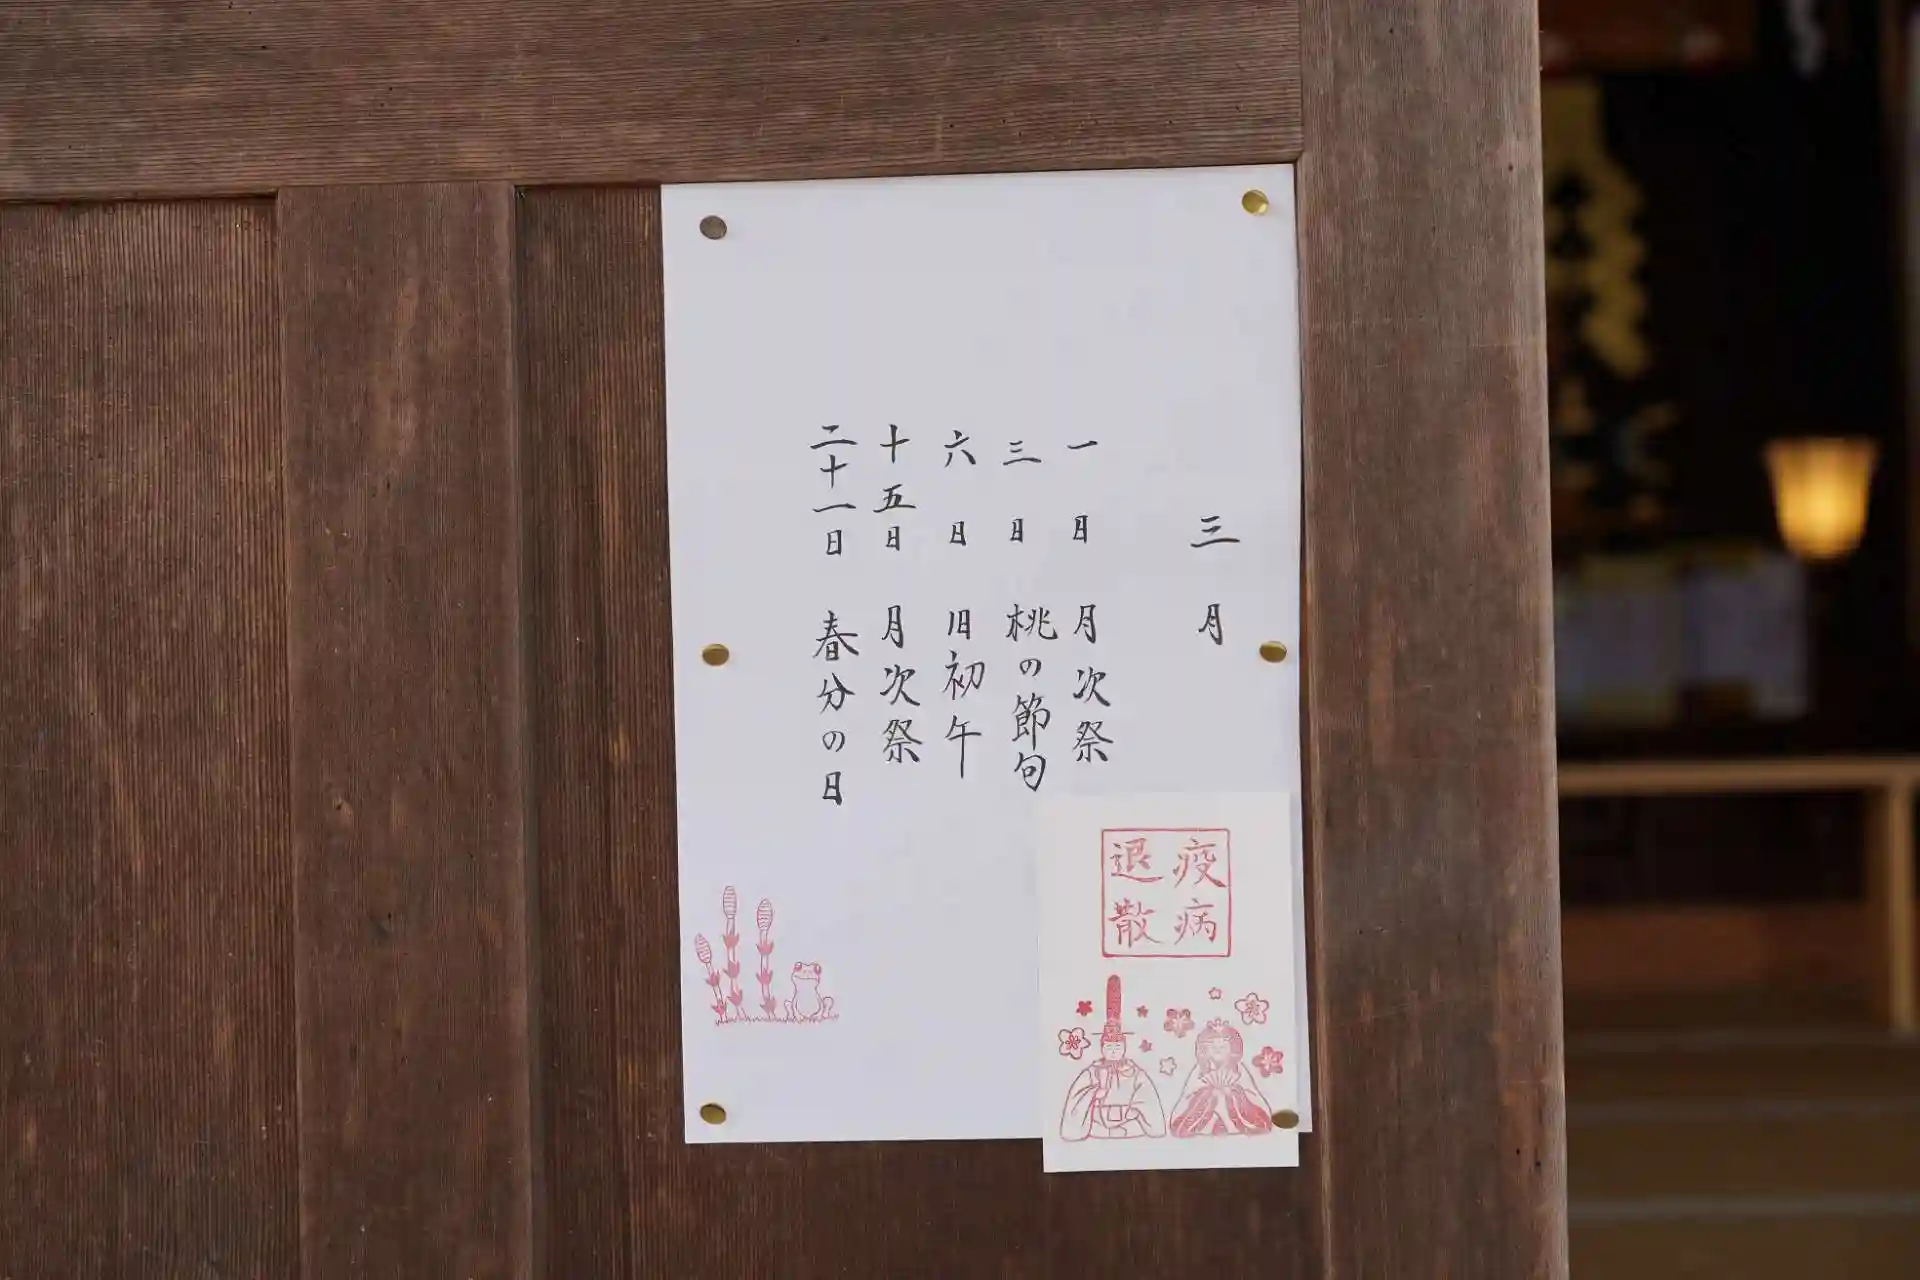 三月
一日 月次祭
三日 桃の節句
六日 旧初午
十五日 月次祭
二十一日 春分の日
疫病
退散